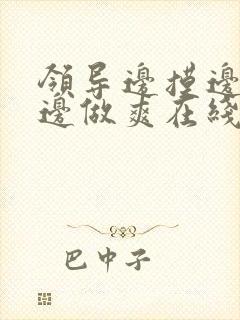 領导邊摸邊
邊做爽在綫
巴中子